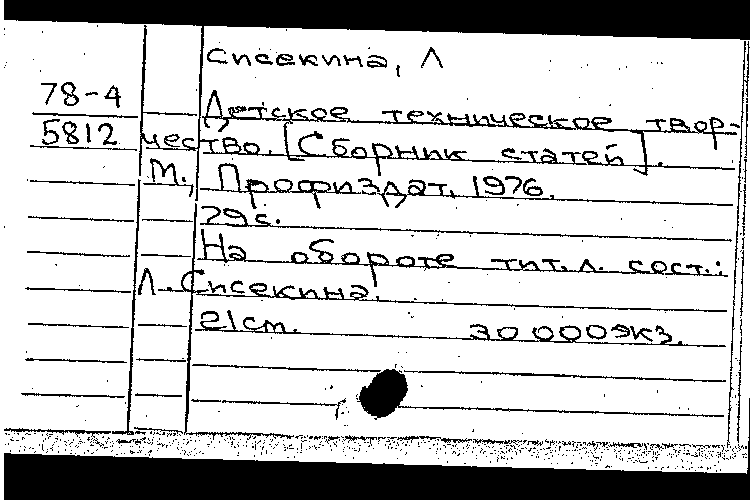 Сисекина, Л
78-4
5812
Детское техническое твор-
чество. [Сборник статей].
М., Профиздат, 1976.
79 с.
На обороте тит. л. сост.:
Л. Сисекина.
21 см. 30 000 экз.